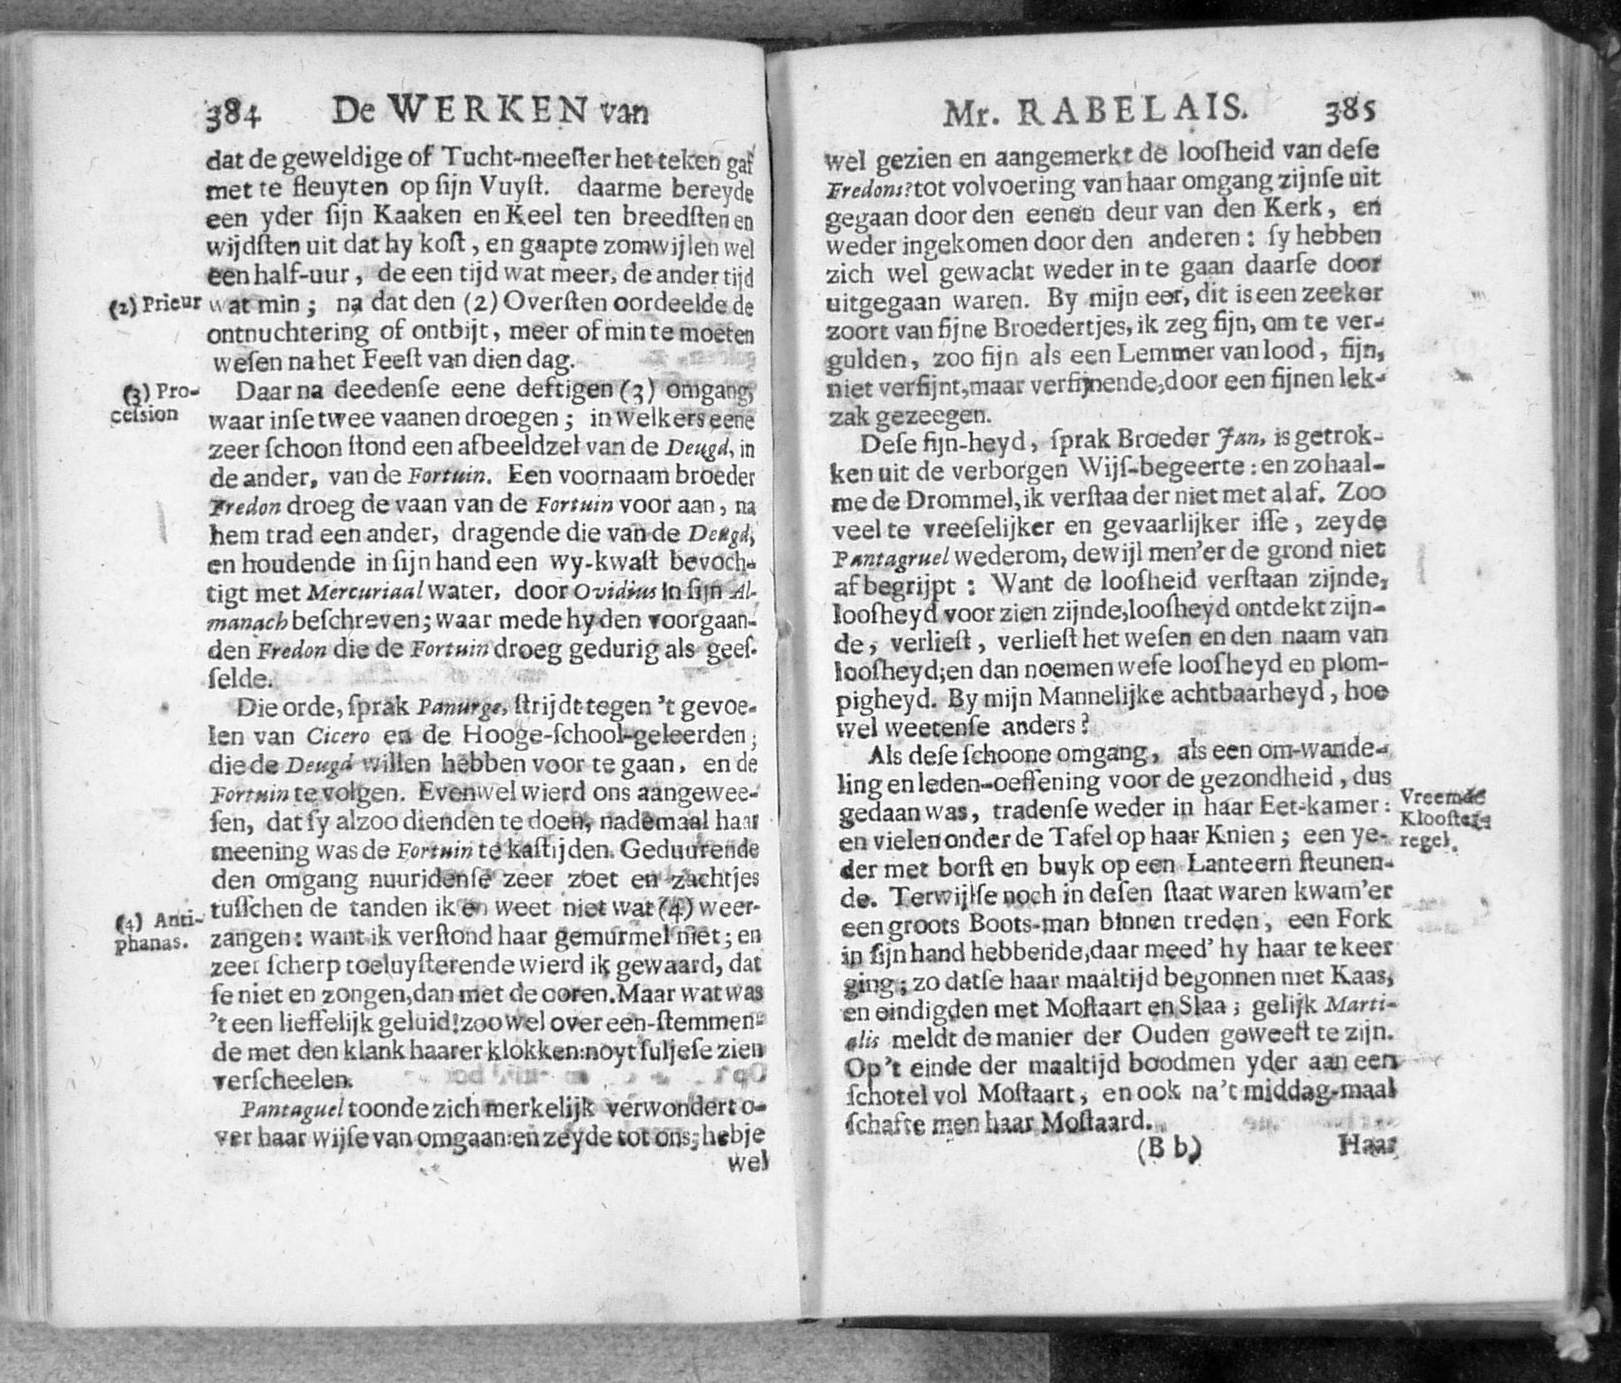 384 De WERKEN van
dat de geweldige of Tucht-meeſter het teken gaf
met te fleuyten op ſijn Vuyſt. daarme bereyde
een yder ſijn Kaaken en Keel ten breedſten en
wijdſten uit dat hy koſt, en gaapte zomwijlen wel
een half-uur, de een tijd wat meer, de ander tijd
(2) Prieur
wat min; na dat den (2) Overſten oordeelde de
ontnuchtering of ontbijt, meer of min te moeten
weſen na het Feeſt van dien dag.
(3) Pro-
ceſsion
Daar na deedenſe eene deftigen (3) omgang,
waar inſe twee vaanen droegen; in welkers eene
zeer ſchoon ſtond een afbeeldzel van de Deugd, in
de ander, van de Fortuin. Een voornaam broeder
Fredon droeg de vaan van de Fortuin voor aan, na
hem trad een ander, dragende die van de Deugd,
en houdende in ſijn hand een wy-kwaſt bevoch-
tigt met Mercuriaal water, door Ovidius in ſijn Al-
manach beſchreven; waar mede hy den voorgaan-
den Fredon die de Fortuin droeg gedurig als geeſ-
ſelde.
Die orde, ſprak Panurge, ſtrijdt tegen 't gevoe-
len van Cicero en de Hooge-ſchool-geleerden;
die de Deugd willen hebben voor te gaan, en de
Fortuin te volgen. Evenwel wierd ons aangewee-
ſen, dat ſy alzoo dienden te doen, nademaal haar
meening was de Fortuin te kaſtijden. Geduurende
den omgang nuuridenſe zeer zoet en zachtjes
(4) Anti-
phanas.
tuſſchen de tanden ik en weet niet wat (4) weer-
zangen: want ik verſtond haar gemurmel niet; en
zeer ſcherp toeluyſterende wierd ik gewaard, dat
ſe niet en zongen, dan met de ooren. Maar wat was
't een lieffelijk geluid! zoo wel over een-ſtemmen-
de met den klank haarer klokken: noyt ſuljeſe zien
verſcheelen.
Pantaguel toonde zich merkelijk verwondert o-
ver haar wijſe van omgaan: en zeyde tot ons; hebje
wel
Mr. RABELAIS. 385
wel gezien en aangemerkt de loofheid van deſe
Fredons? tot volvoering van haar omgang zijnſe uit
gegaan door den eenen deur van den Kerk, en
weder ingekomen door den anderen: ſy hebben
zich wel gewacht weder in te gaan daarſe door
uitgegaan waren. By mijn eer, dit is een zeeker
zoort van fijne Broedertjes, ik zeg fijn, om te ver-
gulden, zoo fijn als een Lemmer van lood, fijn,
niet verfijnt, maar verfijnende, door een fijnen lek-
zak gezeegen.
Deſe fijn-heyd, ſprak Broeder Jan, is getrok-
ken uit de verborgen Wijſ-begeerte: en zo haal-
me de Drommel, ik verſtaa der niet met al af. Zoo
veel te vreeſelijker en gevaarlijker iſſe, zeyde
Pantagruel wederom, dewijl men'er de grond niet
af begrijpt: Want de loofheid verſtaan zijnde,
looſheyd voor zien zijnde, looſheyd ontdekt zijn-
de, verlieſt, verlieſt het weſen en den naam van
looſheyd; en dan noemen weſe looſheyd en plom-
pigheyd. By mijn Mannelijke achtbaarheyd, hoe
wel weetenſe anders?
Als deſe ſchoone omgang, als een om-wande-
ling en leden-oeffening voor de gezondheid, dus
gedaan was, tradenſe weder in haar Eet-kamer:
Vreemde
Klooſter-
regel.
en vielen onder de Tafel op haar Knien; een ye-
der met borſt en buyk op een Lanteern ſteunen-
de. Terwijlſe noch in deſen ſtaat waren kwam'er
een groots Boots-man binnen treden, een Fork
in ſijn hand hebbende, daar meed' hy haar te keer
ging; zo datſe haar maaltijd begonnen met Kaas,
en eindigden met Moſtaart en Slaa; gelijk Marti-
alis meldt de manier der Ouden geweeſt te zijn.
Op't einde der maaltijd boodmen yder aan een
ſchotel vol Moſtaart, en ook na't middag-maal
ſchafte men haar Moſtaard.
(B b) Haar